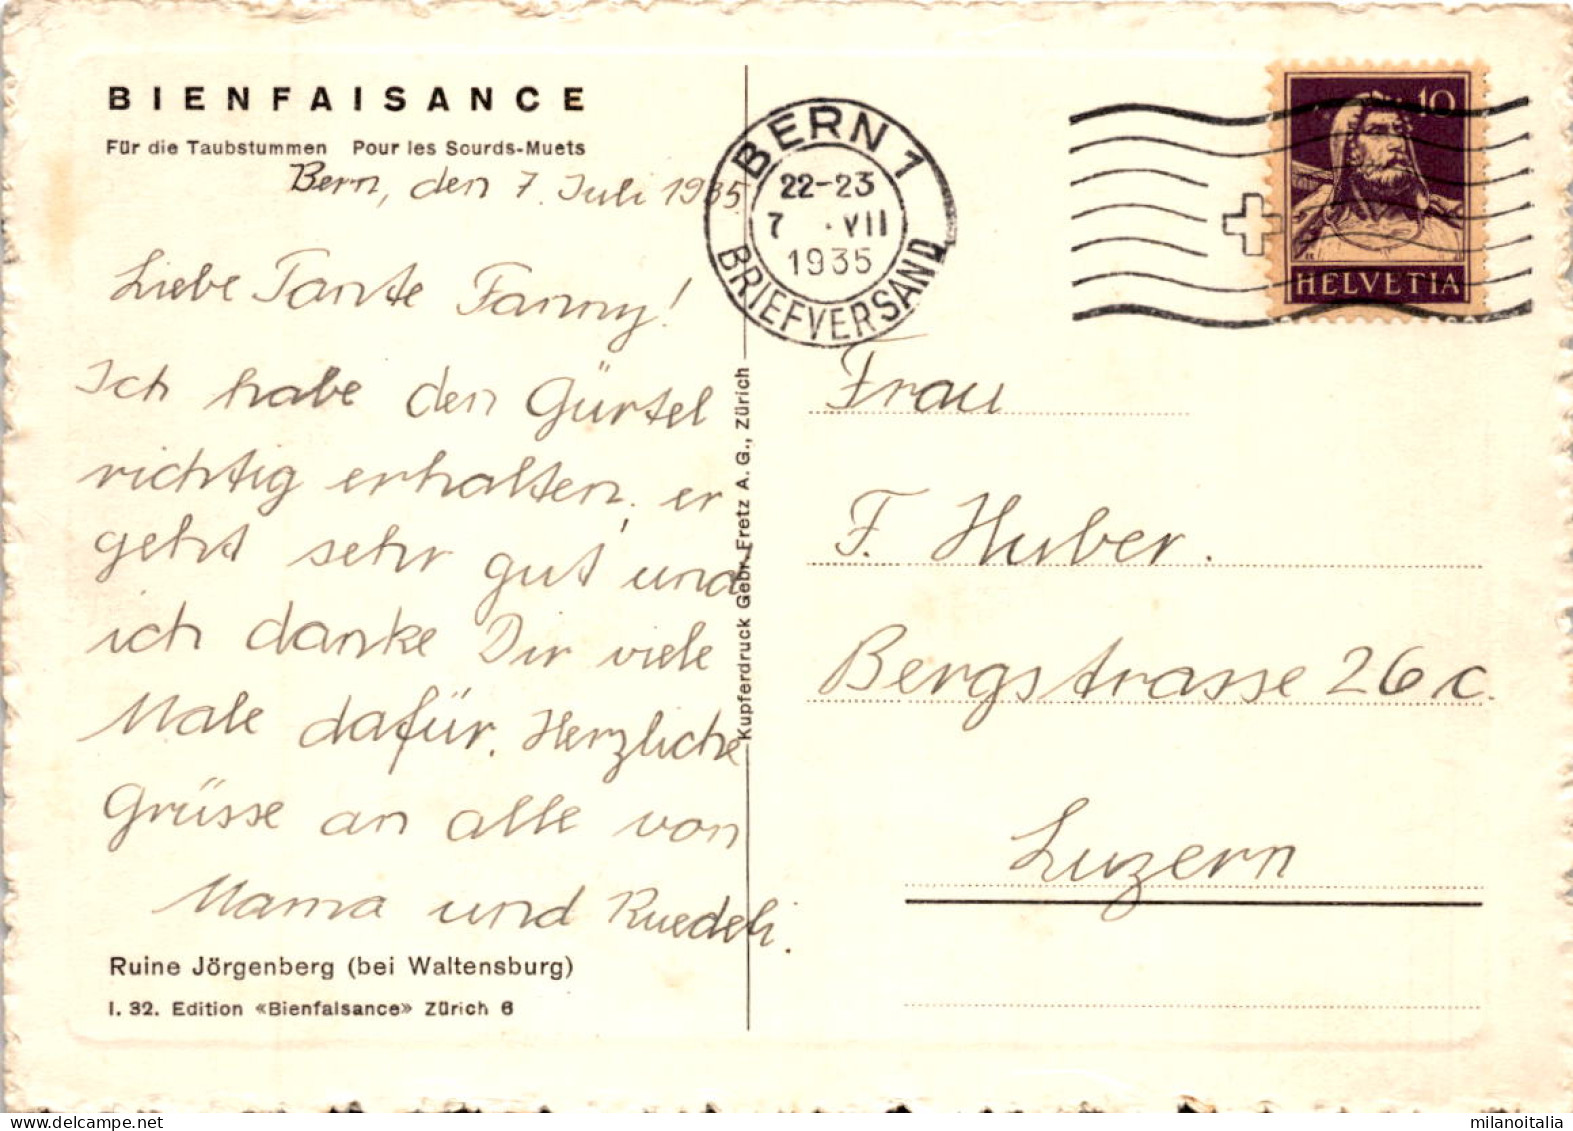 BIENFAISANCE
Für die Taubstummen Pour les Sourds-Muets
Bern, den 7. Juli 1935.
Liebe Tante Fanny!
Ich habe den Gürtel
richtig erhalten, er
geht sehr gut und
ich danke Dir viele
Male dafür. Herzliche
Grüsse an alle von
Mama und Ruedeli.
Ruine Jörgenberg (bei Waltensburg)
I. 32. Edition «Bienfaisance» Zürich 6
Kupferdruck Gebr. Fretz A. G., Zürich
BERN 1
22-23
7 . VII
1935
BRIEFVERSAND
10
HELVETIA
Frau
F. Huber.
Bergstrasse 26c.
Luzern
www.delcampe.net
milanoitalia